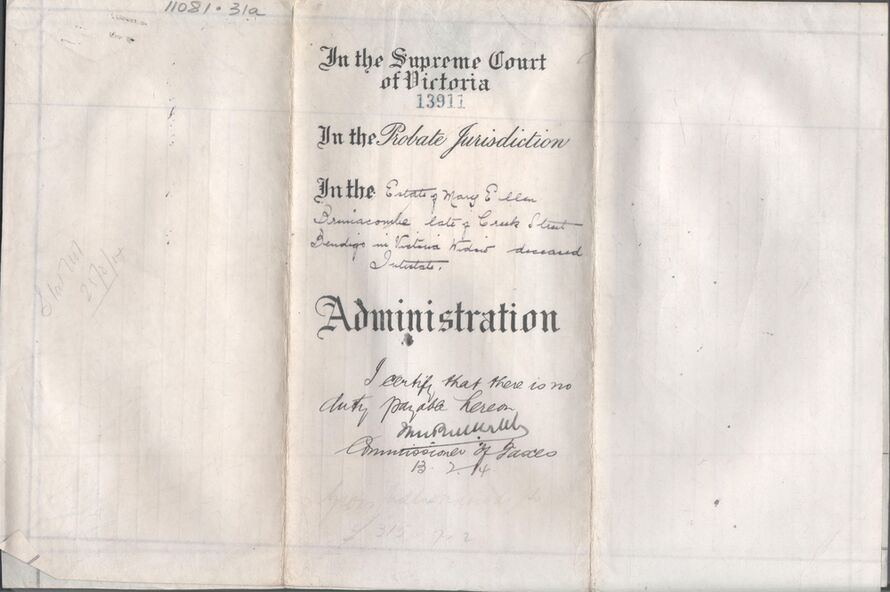 11081 · 31a
In the Supreme Court
of Victoria
13911
In the Probate Jurisdiction
In the Estate of Mary Ellen
Brimacombe late of Creek Street
Bendigo in Victoria Widow deceased
Intestate.
Administration
I certify that there is no
duty payable hereon
Commissioner of Taxes